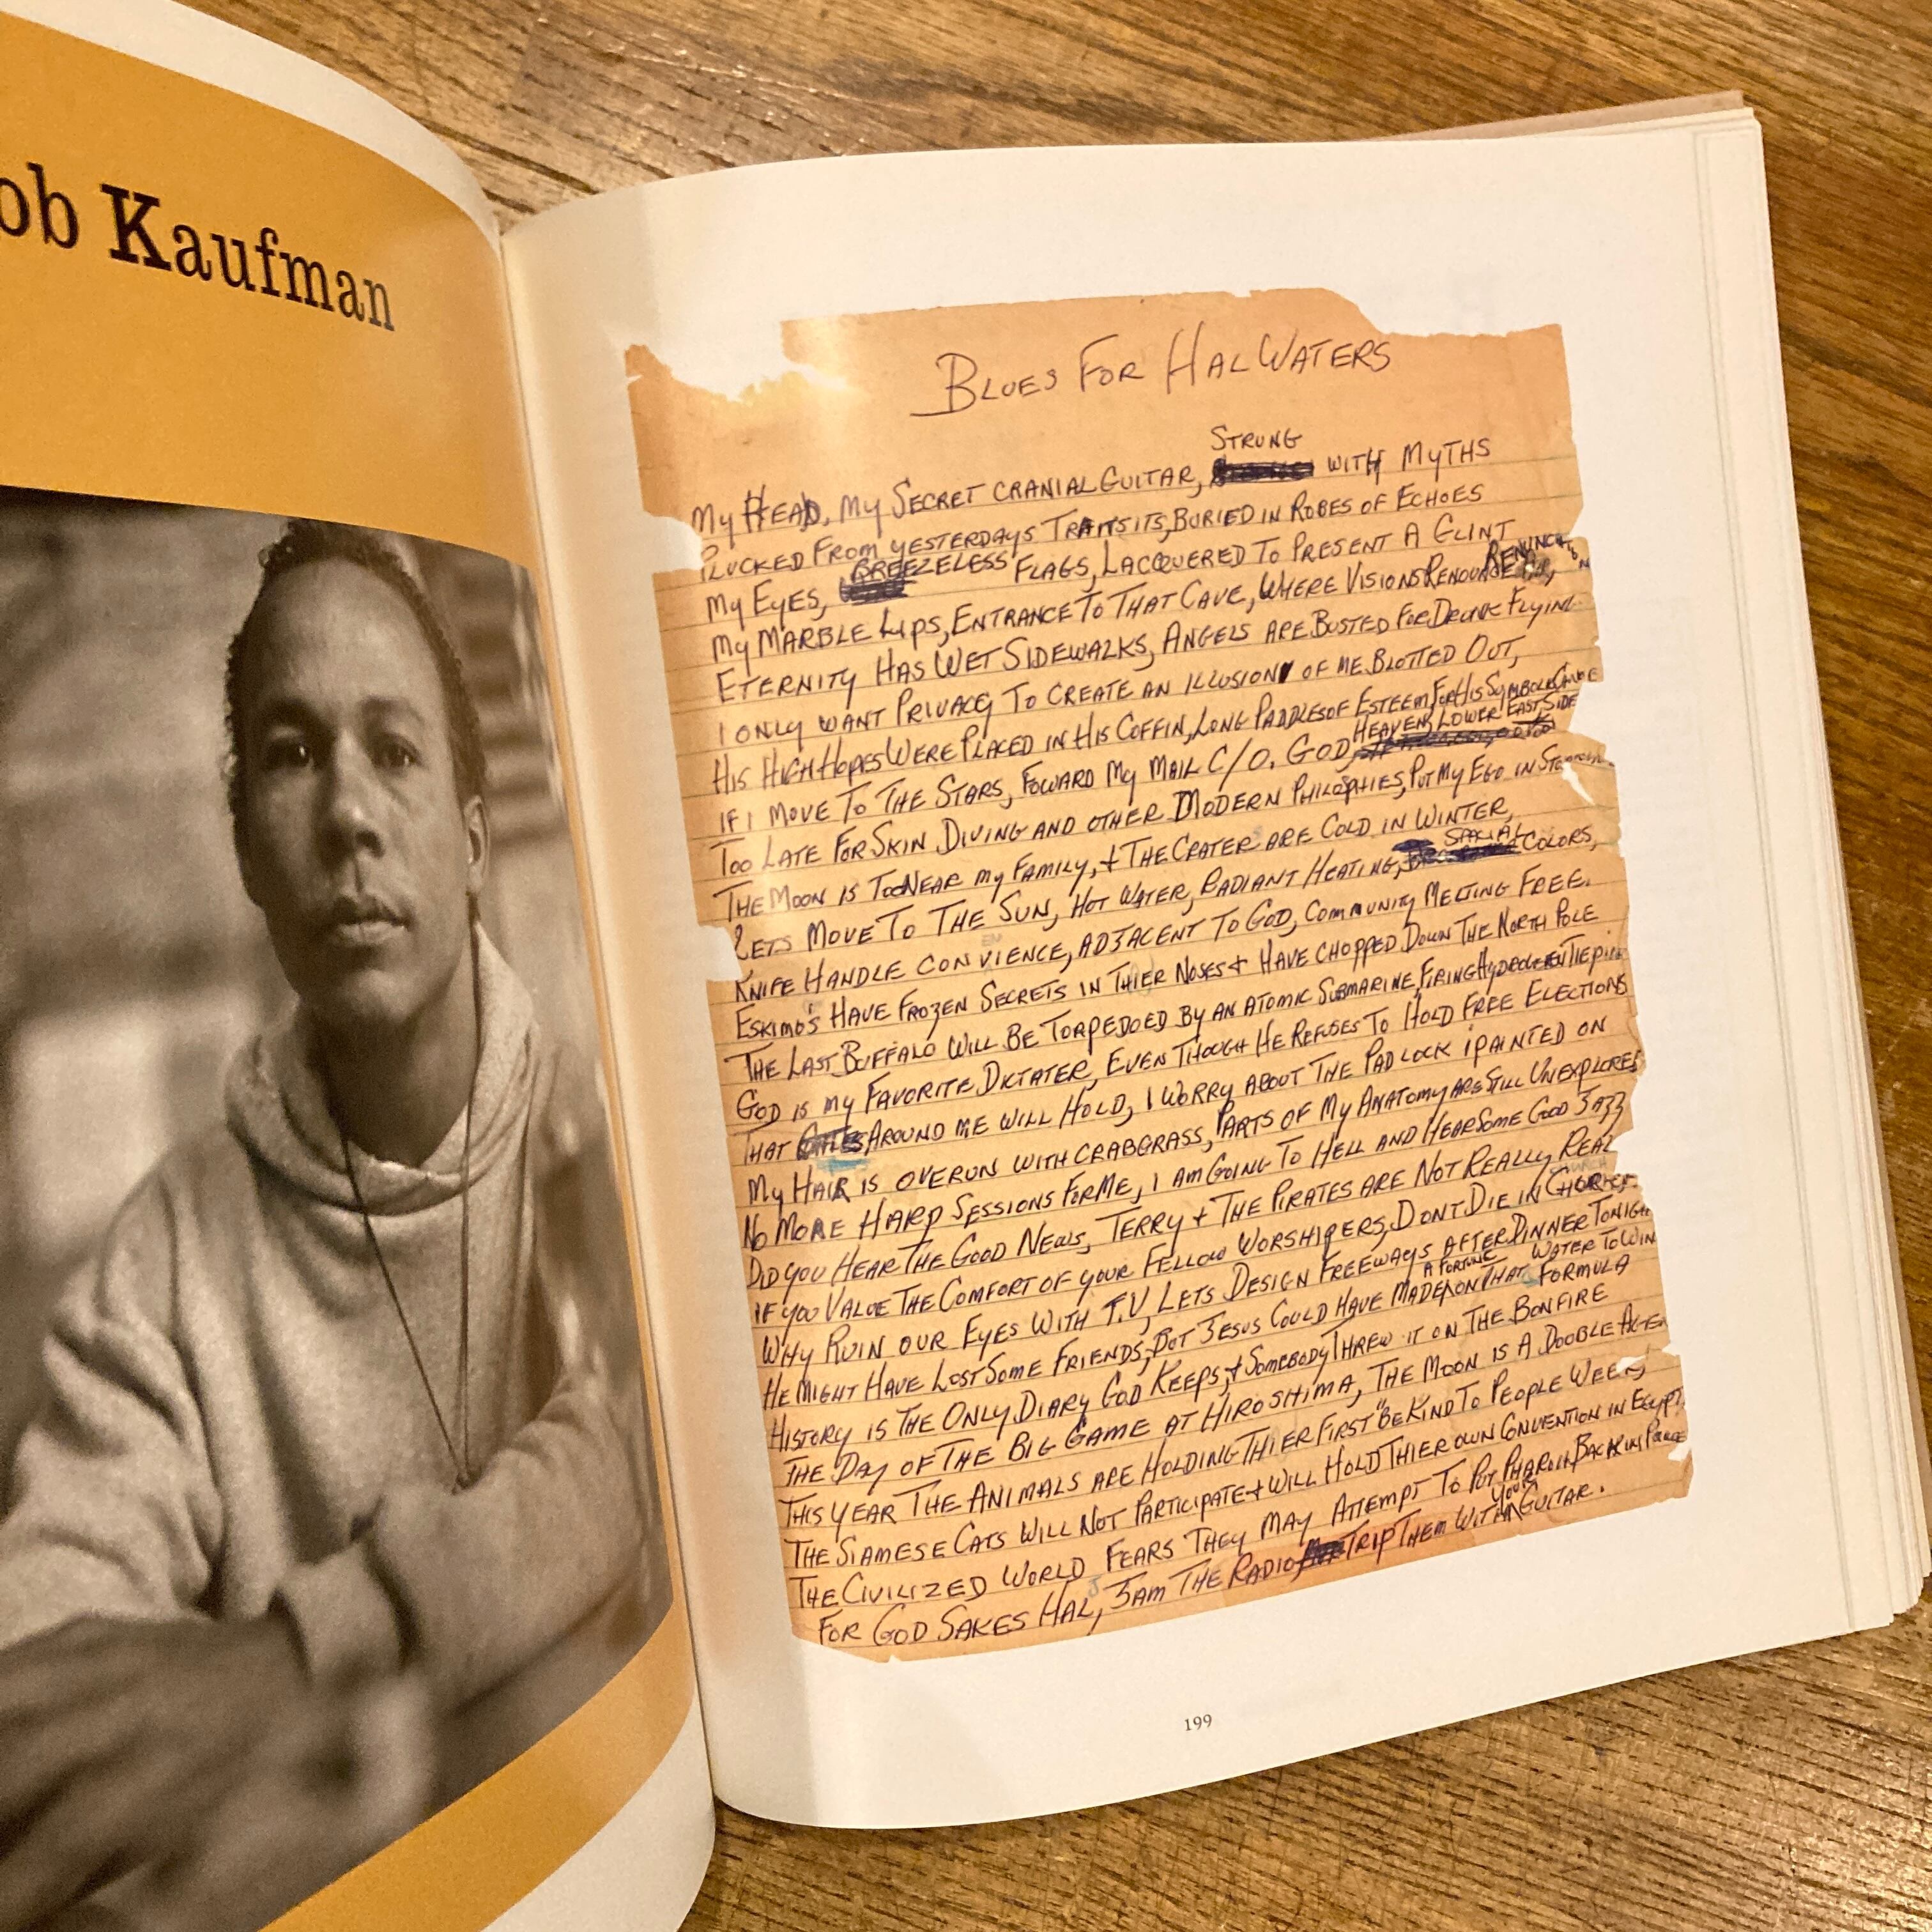 ob Kaufman
BLUES FOR HAL WATERS
MY HEAD, MY SECRET CRANIAL GUITAR, STRUNG WITH MYTHS
PLUCKED FROM YESTERDAYS TRAITSITS, BURIED IN ROBES OF ECHOES
MY EYES, BREEZELESS FLAGS, LACQUERED TO PRESENT A GLINT
MY MARBLE LIPS, ENTRANCE TO THAT CAVE, WHERE VISIONS RENOUNCE
ETERNITY HAS WET SIDEWALKS, ANGELS ARE BUSTED FOR DRUNK FLYING
I ONLY WANT PRIVACY TO CREATE AN ILLUSION OF ME BLOTTED OUT,
HIS HIGH HOPES WERE PLACED IN HIS COFFIN, LONG PADDLES OF ESTEEM FOR HIS SYMBOLIC CANOE
IF I MOVE TO THE STARS, FOWARD MY MAIL C/O. GOD, HEAVEN, LOWER EAST SIDE
TOO LATE FOR SKIN DIVING AND OTHER MODERN PHILOPHIES, PUT MY EGO IN
THE MOON IS TOO NEAR MY FAMILY, + THE CRATER ARE COLD IN WINTER,
LETS MOVE TO THE SUN, HOT WATER, RADIANT HEATING, SPACIAL COLORS,
KNIFE HANDLE CONVIENCE, ADJACENT TO GOD, COMMUNITY MELTING FREE.
ESKIMO'S HAVE FROZEN SECRETS IN THIER NOSES + HAVE CHOPPED DOWN THE NORTH POLE
THE LAST BUFFALO WILL BE TORPEDOED BY AN ATOMIC SUBMARINE, FIRING HYDROGEN TIEPINS
GOD IS MY FAVORITE DICTATER, EVEN THOUGH HE REFUSES TO HOLD FREE ELECTIONS
THAT AROUND ME WILL HOLD, I WORRY ABOUT THE PADLOCK I PAINTED ON
MY HAIR IS OVERUN WITH CRABGRASS, PARTS OF MY ANATOMY ARE STILL UNEXPLORED
NO MORE HARP SESSIONS FOR ME, I AM GOING TO HELL AND HEAR SOME GOOD JAZZ
DID YOU HEAR THE GOOD NEWS, TERRY + THE PIRATES ARE NOT REALLY REAL
IF YOU VALUE THE COMFORT OF YOUR FELLOW WORSHIPERS, DONT DIE IN CHURCH.
WHY RUIN OUR EYES WITH T.V, LETS DESIGN FREEWAYS AFTER DINNER TONIGHT
HE MIGHT HAVE LOST SOME FRIENDS, BUT JESUS COULD HAVE MADE A FORTUNE ON THAT WATER TO WIN FORMULA
HISTORY IS THE ONLY DIARY GOD KEEPS, + SOMEBODY THREW IT ON THE BONFIRE
THE DAY OF THE BIG GAME AT HIROSHIMA, THE MOON IS A DOOBLE AGEN
THIS YEAR THE ANIMALS ARE HOLDING THIER FIRST "BE KIND TO PEOPLE WEEK
THE SIAMESE CATS WILL NOT PARTICIPATE + WILL HOLD THIER OWN CONVENTION IN EGYPT,
THE CIVILIZED WORLD FEARS THEY MAY ATTEMPT TO PUT PHAROAH BACK IN
FOR GOD SAKES HAL, JAM THE RADIO, TRIP THEM WITH YOUR GUITAR.
199